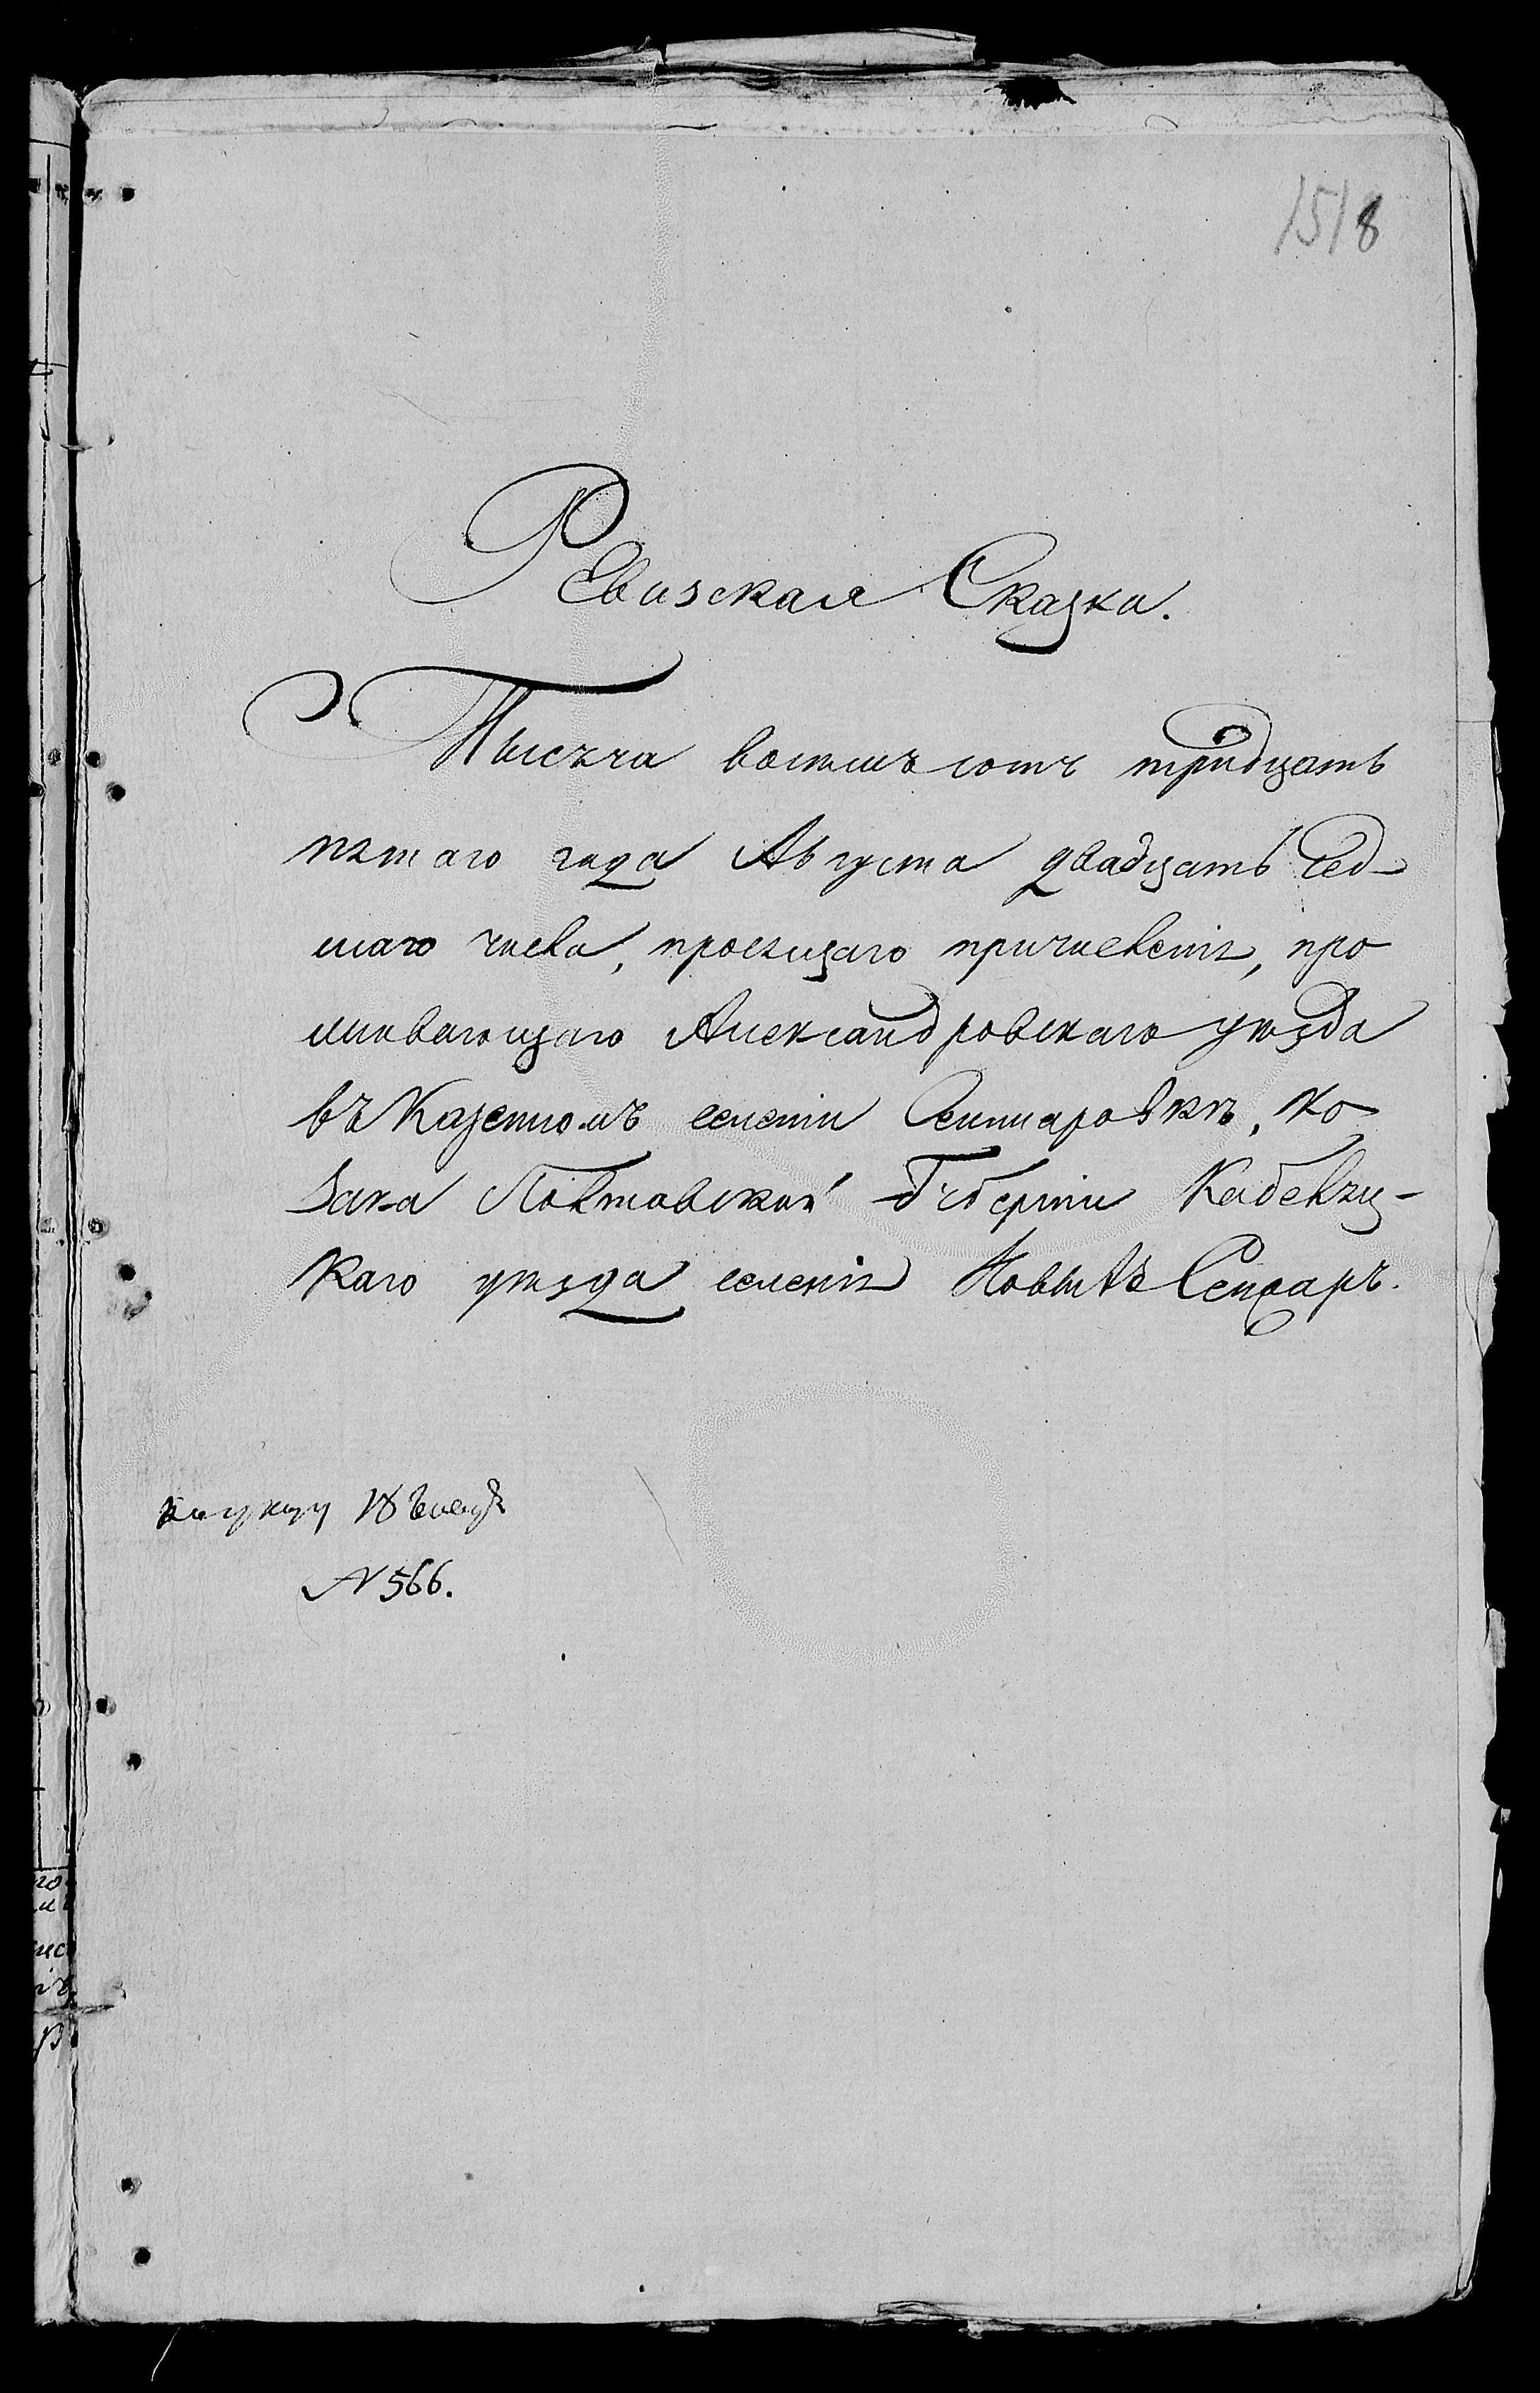 1518
Ревизская Сказка.
Тысяча восемъ сотъ тридцать
пятаго года Августа двадцать сед-
маго числа, просящаго причисленія, про
живающаго Александровскаго уѣзда
въ Казенномъ селеніи Санжаровкѣ, ко
зака Полтавской Губерніи Кабеляц-
каго уѣзда селенія Новыхъ Сенжаръ.
N 566.